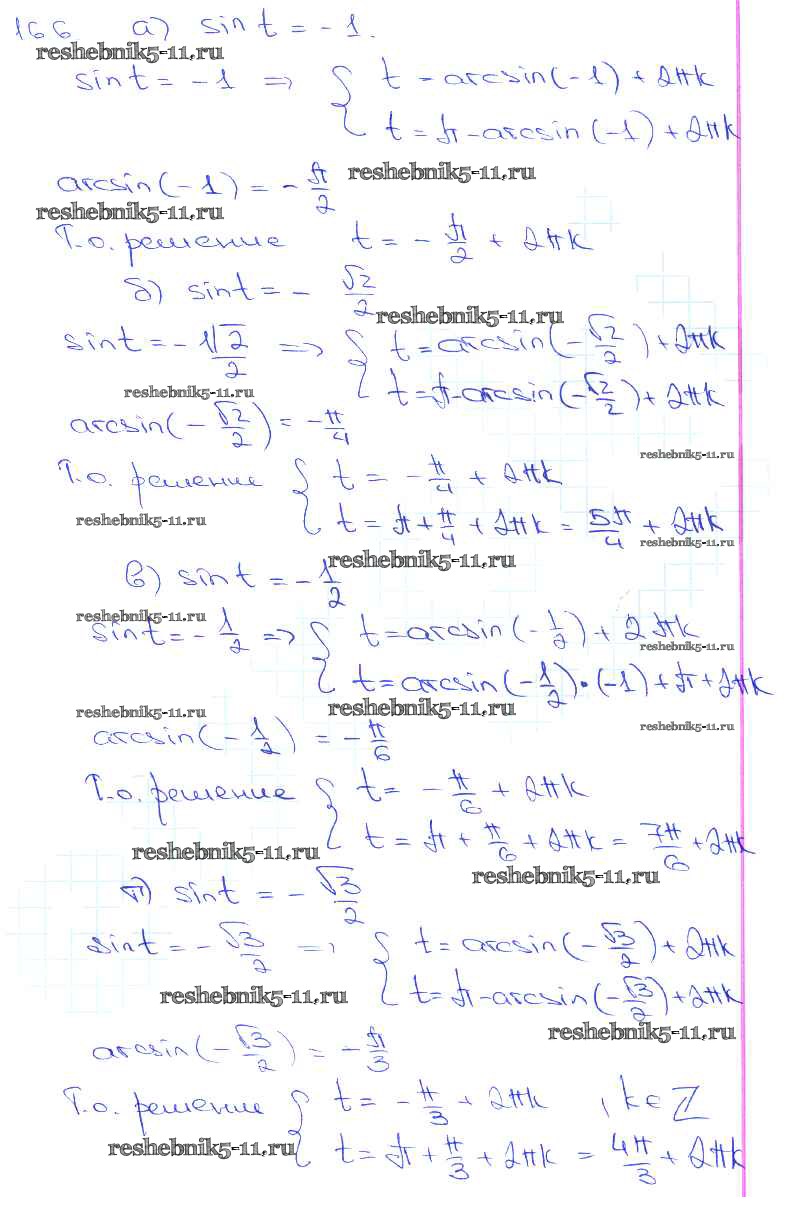 166 а) sin t = -1.
reshebnik5-11.ru
sin t = -1 => { t = arcsin(-1) + 2πk
t = π - arcsin(-1) + 2πk
arcsin(-1) = -π/2
reshebnik5-11.ru
reshebnik5-11.ru
Т.о. решение t = -π/2 + 2πk
б) sin t = - √2/2
reshebnik5-11.ru
sin t = -√2/2 => { t = arcsin(-√2/2) + 2πk
t = π - arcsin(-√2/2) + 2πk
reshebnik5-11.ru
arcsin(-√2/2) = -π/4
reshebnik5-11.ru
Т.о. решение { t = -π/4 + 2πk
t = π + π/4 + 2πk = 5π/4 + 2πk
reshebnik5-11.ru
reshebnik5-11.ru
reshebnik5-11.ru
в) sin t = -1/2
reshebnik5-11.ru
sin t = -1/2 => { t = arcsin(-1/2) + 2πk
reshebnik5-11.ru
t = arcsin(-1/2)·(-1) + π + 2πk
reshebnik5-11.ru
reshebnik5-11.ru
reshebnik5-11.ru
arcsin(-1/2) = -π/6
Т.о. решение { t = -π/6 + 2πk
t = π + π/6 + 2πk = 7π/6 + 2πk
reshebnik5-11.ru
reshebnik5-11.ru
г) sin t = -√3/2
sin t = -√3/2 => { t = arcsin(-√3/2) + 2πk
t = π - arcsin(-√3/2) + 2πk
reshebnik5-11.ru
reshebnik5-11.ru
arcsin(-√3/2) = -π/3
Т.о. решение { t = -π/3 + 2πk , k∈Z
t = π + π/3 + 2πk = 4π/3 + 2πk
reshebnik5-11.ru